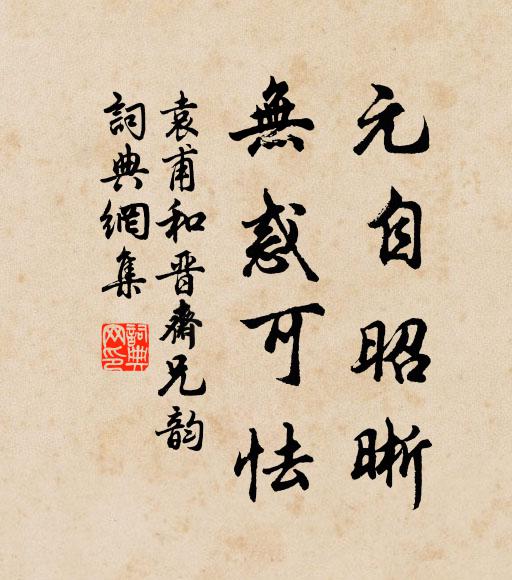 元自昭晰
無惑可怯
袁甫和晋齋兄韵
詞典網集
詞典
网印